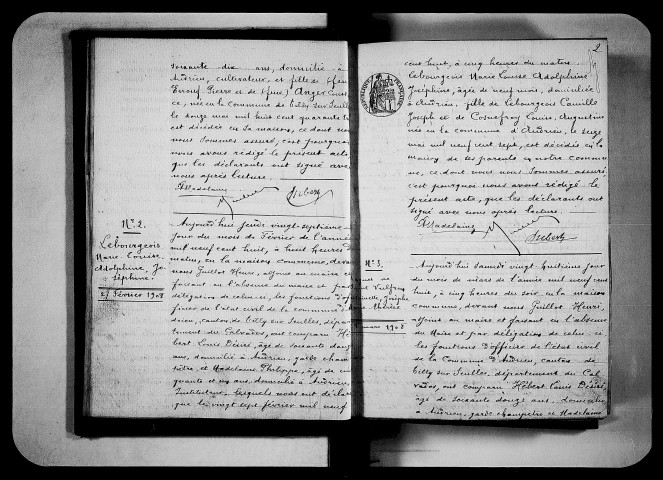 soixante dix ans, domicilié à
Audrieu, cultivateur, et fille de (feu)
Pierre et de (feue) Anger
ce, née en la commune de Tilly sur Seulles
le douze mai mil huit cent quarante
est décédée en sa maison, ce dont nous
nous sommes assuré, c'est pourquoi
nous avons rédigé le présent acte
que les déclarants ont signé avec
nous après lecture.
Madelaine
Hébert
N° 2.
Lebourgeois
Marie Louise
Adolphine, Jo-
séphine.
27 Février 1908
Aujourd'hui jeudi vingt-septième
jour du mois de Février de l'année
mil neuf cent huit, à huit heures du
matin, en la maison commune, devant
nous Guillot Henri, adjoint au maire et
faisant en l'absence du maire et par
délégation de celui-ci, les fonctions d'of-
ficier de l'état civil de la commune d'Au-
drieu, canton de Tilly sur Seulles, dépar-
tement du Calvados, ont comparu Hé-
bert Louis Désiré, âgé de soixante douze
ans, domicilié à Audrieu, garde cham-
pêtre, et Madelaine Philippe, âgé de cin-
quante et un ans, domicilié à Audrieu,
Instituteur, lesquels nous ont déclaré
que le vingt sept février mil neuf
2
cent huit, à cinq heures du matin
Lebourgeois Marie Louise Adolphine
Joséphine, âgée de neuf mois, domiciliée
à Audrieu, fille de Lebourgeois Camille
Joseph et de Cornefroy Louise, Augustine
née en la commune d'Audrieu, le seize
mai mil neuf cent sept, est décédée en la
maison de ses parents en notre commu-
ne, ce dont nous nous sommes assuré
c'est pourquoi nous avons rédigé le
présent acte, que les déclarants ont
signé avec nous après lecture.
Madelaine
Hébert
N° 3.
Vulfran
Joséphe
mars 1908
Aujourd'hui samedi vingt-huitième jour
du mois de mars de l'année mil neuf cent
huit, à cinq heures du soir en la maison
commune, devant nous Guillot Henri,
adjoint au maire et faisant en l'absence
du Maire et par délégation de celui-ci
les fonctions d'officier de l'état civil
de la Commune d'Audrieu, canton de
Tilly sur Seulles, département du Cal-
vados, ont comparu Hébert Louis Désiré,
âgé de soixante douze ans, domicilié
à Audrieu, garde champêtre et Madelaine